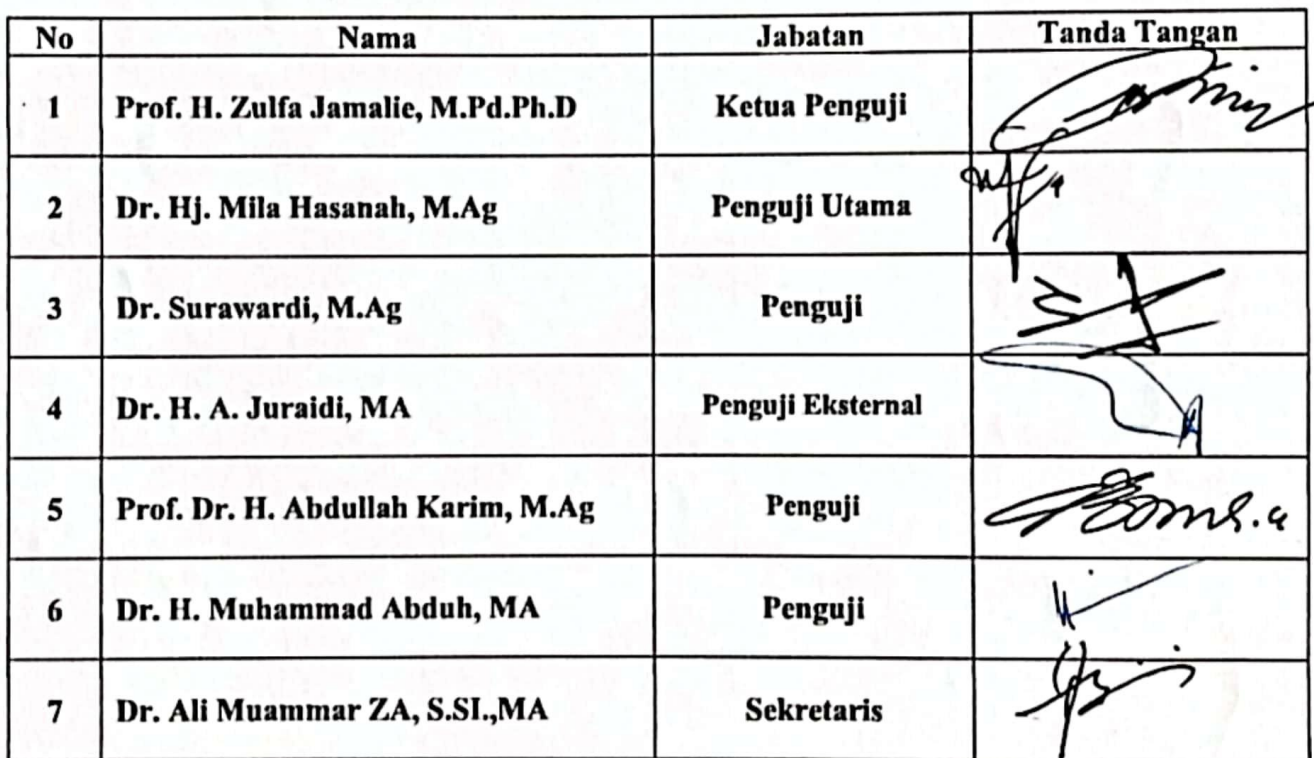 No Nama Jabatan Tanda Tangan
1 Prof. H. Zulfa Jamalie, M.Pd.Ph.D Ketua Penguji
2 Dr. Hj. Mila Hasanah, M.Ag Penguji Utama
3 Dr. Surawardi, M.Ag Penguji
4 Dr. H. A. Juraidi, MA Penguji Eksternal
5 Prof. Dr. H. Abdullah Karim, M.Ag Penguji
6 Dr. H. Muhammad Abduh, MA Penguji
7 Dr. Ali Muammar ZA, S.SI.,MA Sekretaris